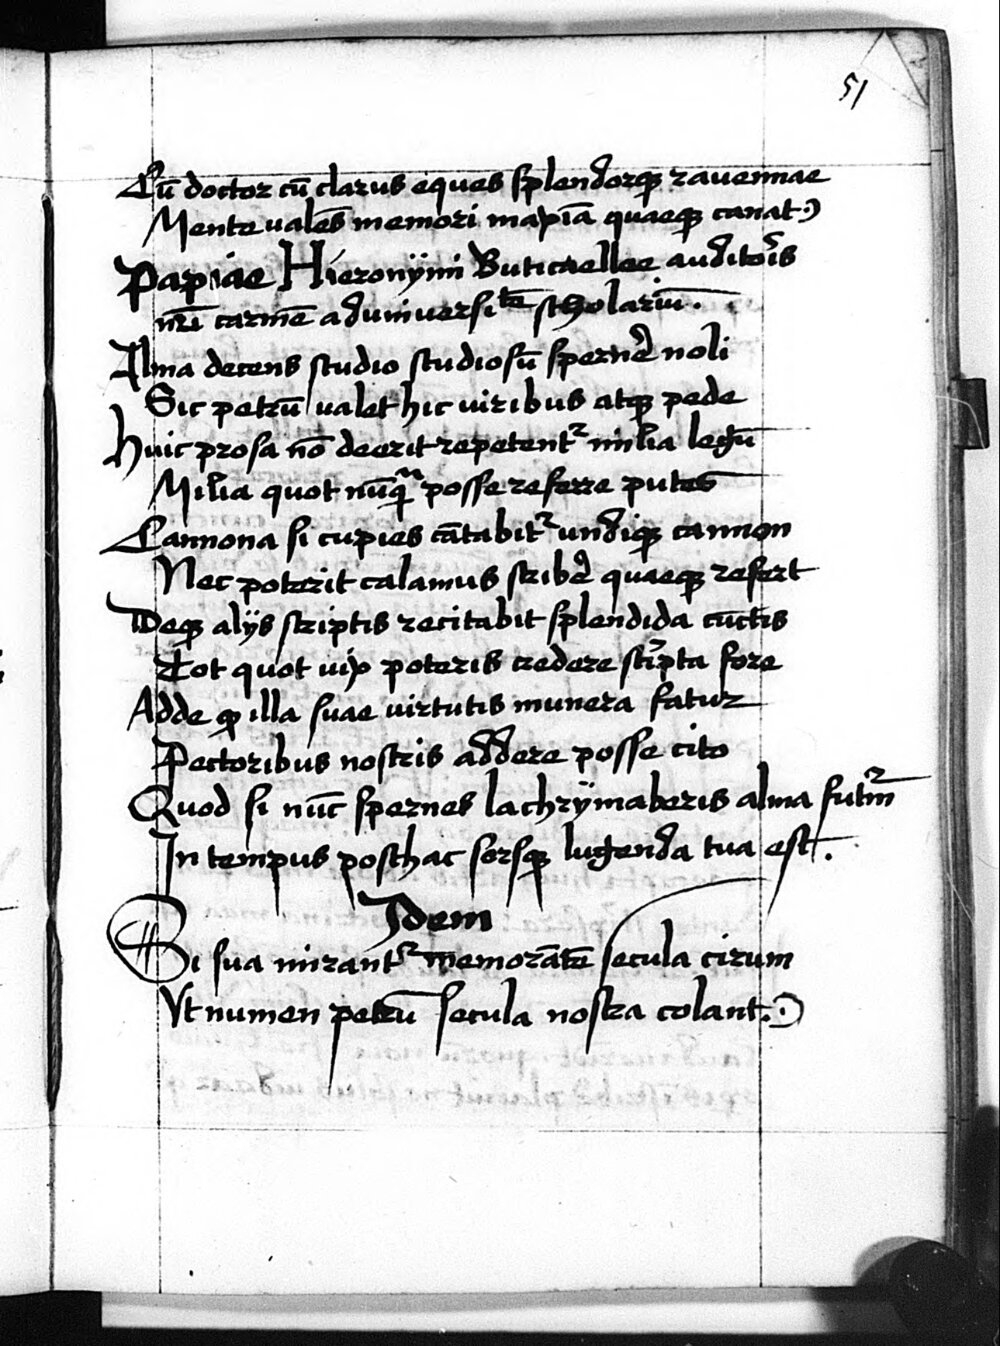 51
Cū doctor cū clarus eques splendorq̨ ravennae
Mente valēs memori mapiā quaeq̨ canat
Papiae Hieronÿmi Buticaellee auditoīs
nrī carmē aduniversitē scholariū.
Alma decens studio studiosū spernē noli
Sic petrū valet hic viribus atq̨ pede
Huic prosa nō deerit repetentr milia legū
Milia quot nūq̨ posse referre putes
Cannona si cupies cātabitr undiq̨ cannon
Nec poterit calamus scribē quaeq̨ refert
Deq̨ alÿs scriptis recitabit splendida cūctis
Tot quot vix poteris credere scripta fore
Adde q̨ illa suae virtutis munera fatur
Pectoribus nostris addere posse cito
Quod si nūc spernes lachrÿmaberis alma
In tempus posthac sorsq̨ lugenda tua est.
Idem
Si sua mirantr memorātē secula cirum
Vt numen petrū secula nostra colant.